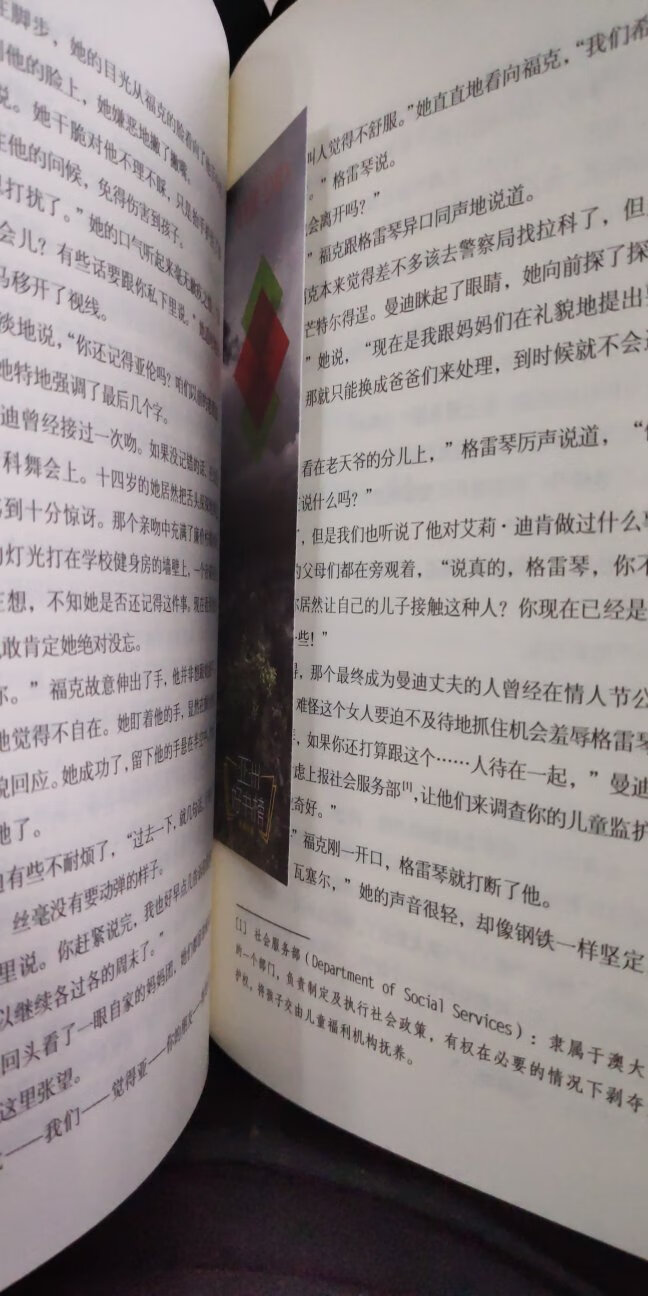 脚步，她的目光从福克的脸
他的脸上，她嫌恶地撇了撇嘴。
说。她干脆对他不理不睬，只是
他的问候，免得伤害到孩子。
打扰了。”她的口气听起来毫无
会儿？有些话要跟你私下里说。”
马移开了视线。
淡地说，“你还记得亚伦吗？咱们以前
她特地强调了最后几个字。
迪曾经接过一次吻。如果没记错的话，
科舞会上。十四岁的她居然把舌头
到十分惊讶。那个亲吻中充满了
灯光打在学校健身房的墙壁上，一个
想，不知她是否还记得这件事。现在
敢肯定她绝对没忘。
尔。”福克故意伸出了手，他并非想跟
他觉得不自在。她盯着他的手，显然
回应。她成功了，留下他的手悬在半空中，
他了。
有些不耐烦了，“过去一下，就几句话，
丝毫没有要动弹的样子。
里说。你赶紧说完，我也好早点儿
以继续各过各的周末了。”
回头看了一眼自家的妈妈团，她们
这里张望。
——我们——觉得亚——你的朋友
叫人觉得不舒服。”她直直地看向福克，“我们希
。”格雷琴说。
会离开吗？”
”福克跟格雷琴异口同声地说道。
克本来觉得差不多该去警察局找拉科了，但
芒特尔得逞。曼迪眯起了眼睛，她向前探了探
”她说，“现在是我跟妈妈们在礼貌地提出
那就只能换成爸爸们来处理，到时候就不会
看在老天爷的分儿上，”格雷琴厉声说道，“
说什么吗？”
，但是我们也听说了他对艾莉·迪肯做过什么
的父母们都在旁观着，“说真的，格雷琴，你不
尔居然让自己的儿子接触这种人？你现在已经是
些！”
得，那个最终成为曼迪丈夫的人曾经在情人节公
难怪这个女人要迫不及待地抓住机会羞辱格雷琴
，如果你还打算跟这个……人待在一起，”曼迪
虑上报社会服务部[1]，让他们来调查你的儿童监护
奇好。”
”福克刚一开口，格雷琴就打断了他。
瓦塞尔，”她的声音很轻，却像钢铁一样坚定
[1] 社会服务部（Department of Social Services）：隶属于澳大
的一个部门，负责制定及执行社会政策，有权在必要的情况下剥夺
护权，将孩子交由儿童福利机构抚养。
亚洲
好书榜